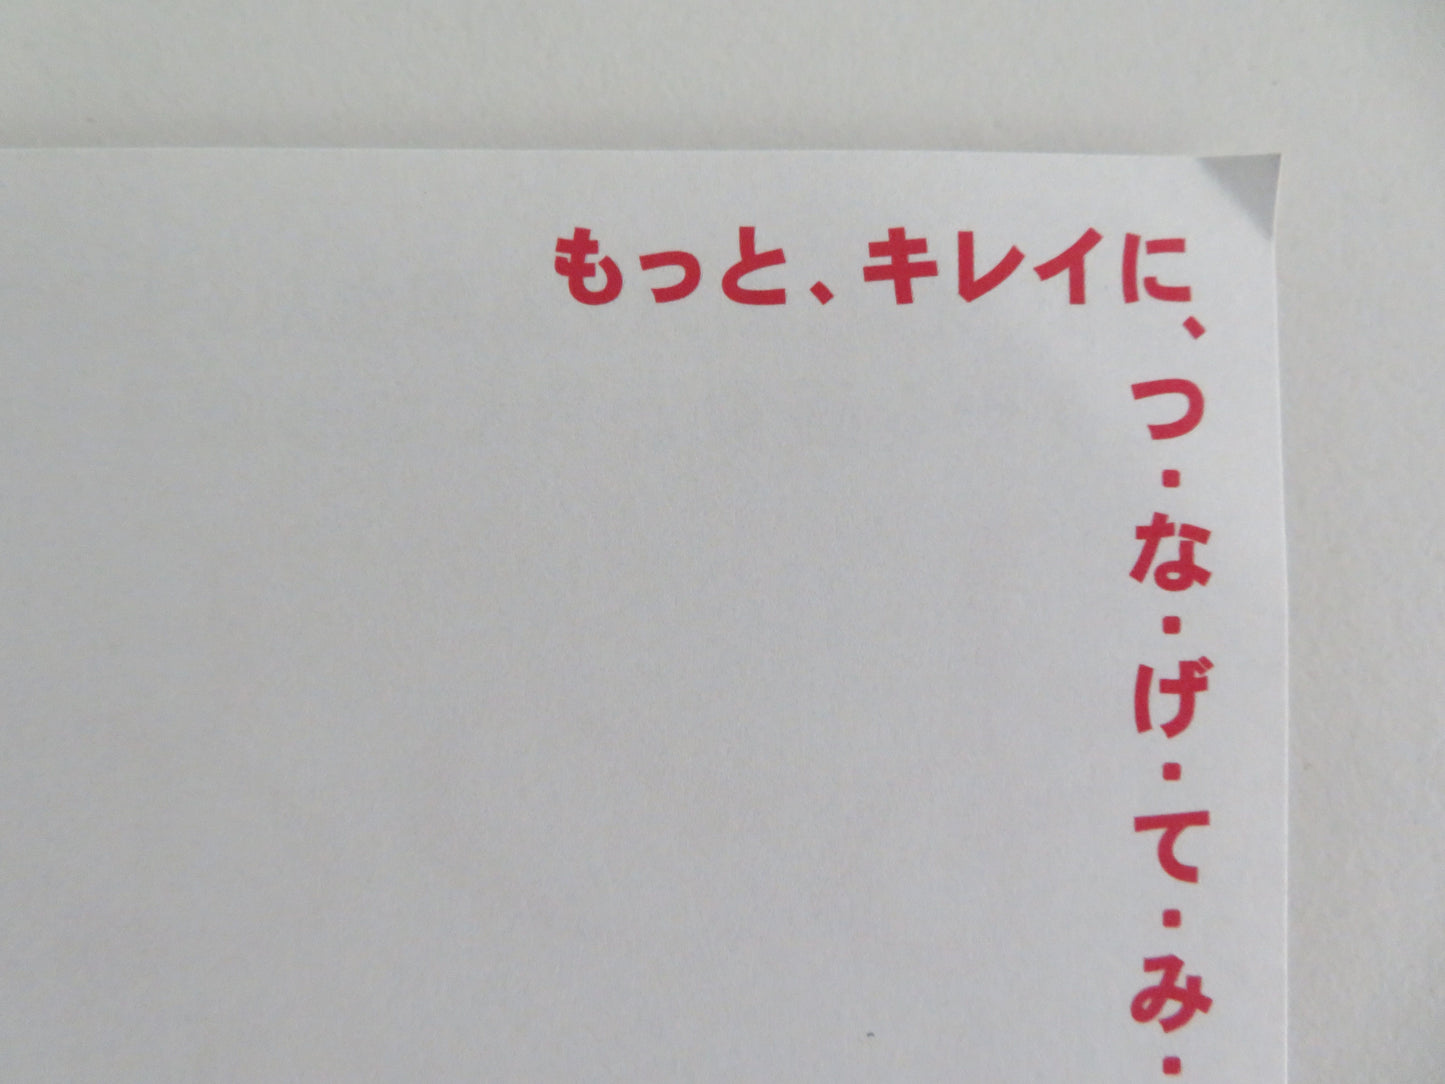 もっと、キレイに、
つ・な・げ・て・み・